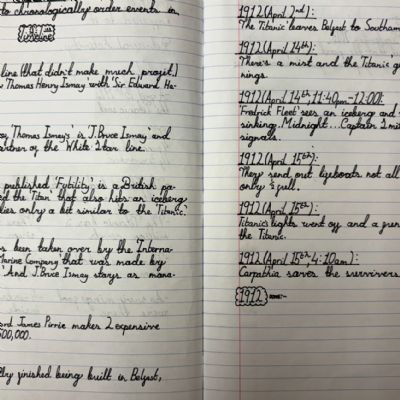 to chronologically order events in
line (that didn't make much profit.)
Thomas Henry Ismay' with 'Sir Edward Ha-
Thomas Ismay's is 'J.Bruce Ismay' and
partner of the White Star line.
published, 'Futility' is a British pa-
the Titan' that also hits an iceberg
only a bit similar to the Titanic.
been taken over by the Interna-
Marine Company' that was made by
And J.Bruce Ismay stays as mana-
James Pirrie makes 2 expensive
500,000.
finished being built in Belfast,
1912(April 2nd):
The Titanic leaves Belfast to Southam
1912(April 14th):
There's a mist and the Titanic g
nings.
1912(April 14th 11:40pm-12:00):
'Fredrick Fleet' sees an iceberg and
sinking. Midnight... Captain Smit
signals.
1912(April 15th):
They send out lifeboats not all
only ½ full.
1912(April 15th):
Titanic's lights went off and a
the Titanic.
1912(April 15th, 4:10am):
Carpathia saves the survivers
1912